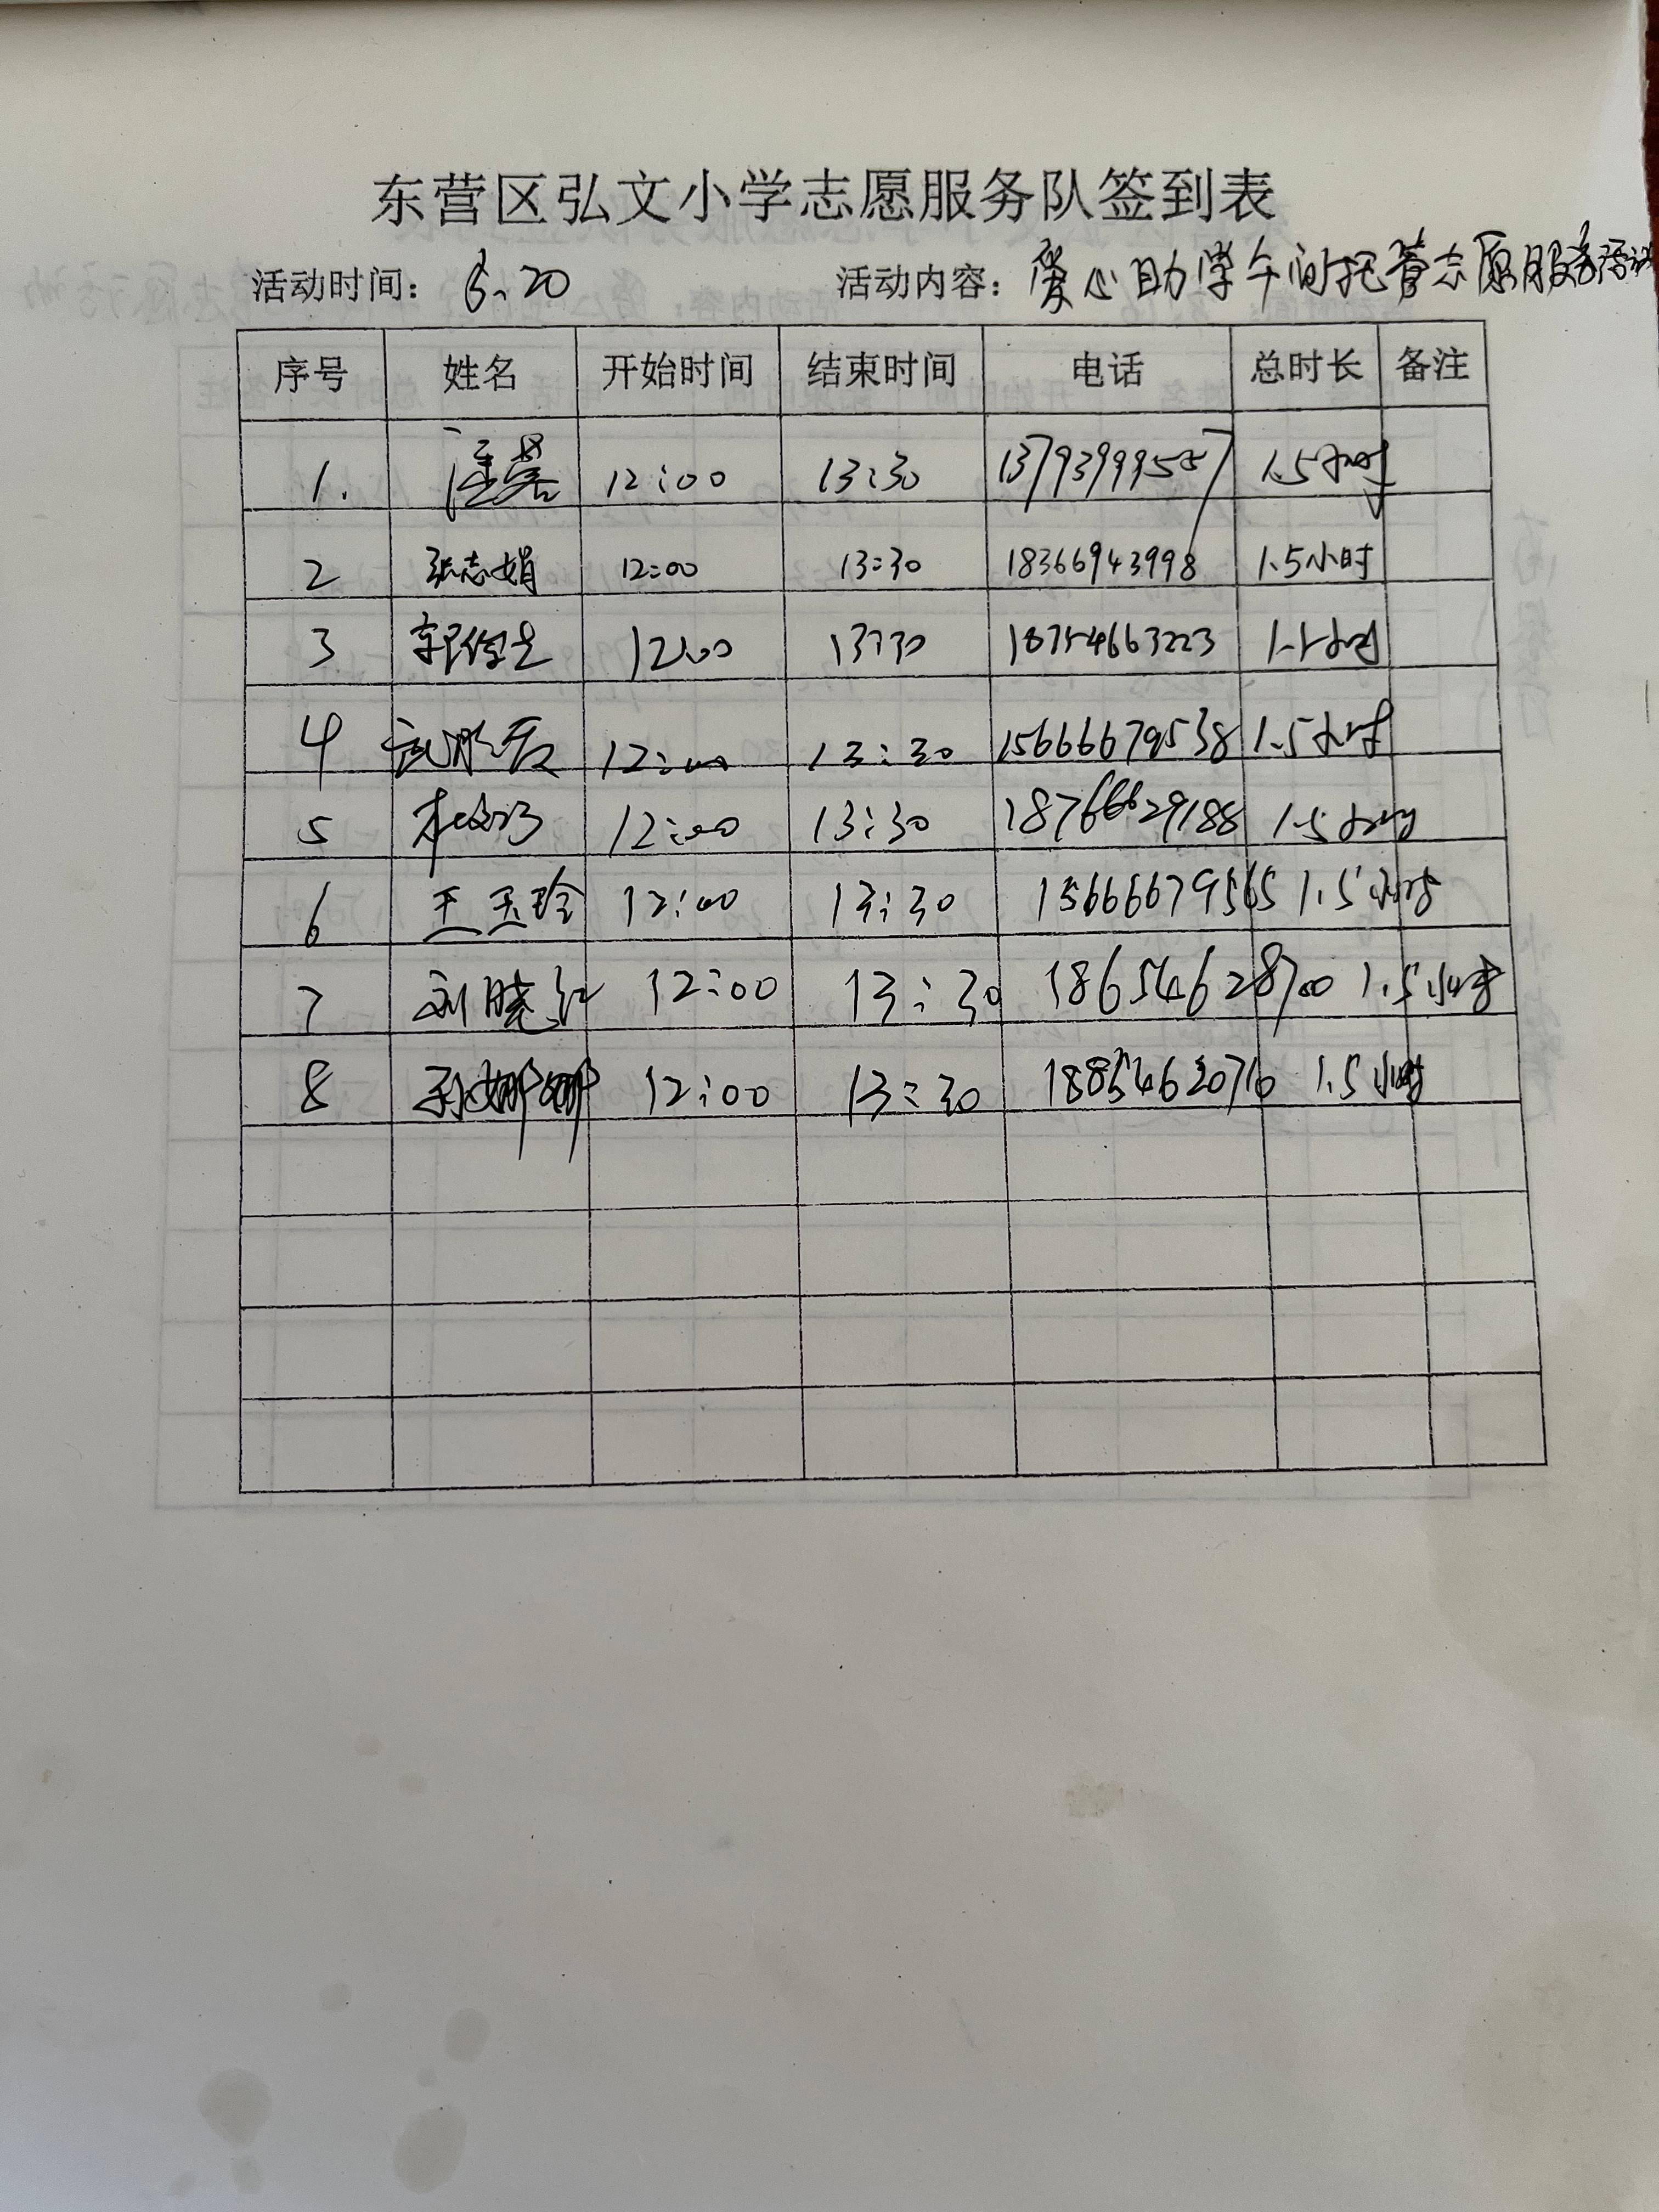 东营区弘文小学志愿服务队签到表
活动时间：6.20 活动内容：爱心助学午间托管志愿服务活动
序号 姓名 开始时间 结束时间 电话 总时长 备注
1. 汪 12:00 13:30 13793999557 1.5小时
2 张志娟 12:00 13:30 18366943998 1.5小时
3 12:00 13:30 18754663223 1.5小时
4 12:00 13:30 15666679538 1.5小时
5 12:00 13:30 18766629188 1.5小时
6 王玉玲 12:00 13:30 15666679565 1.5小时
7 刘晓红 12:00 13:30 18654628700 1.5小时
8 孙娜娜 12:00 13:30 1.5小时